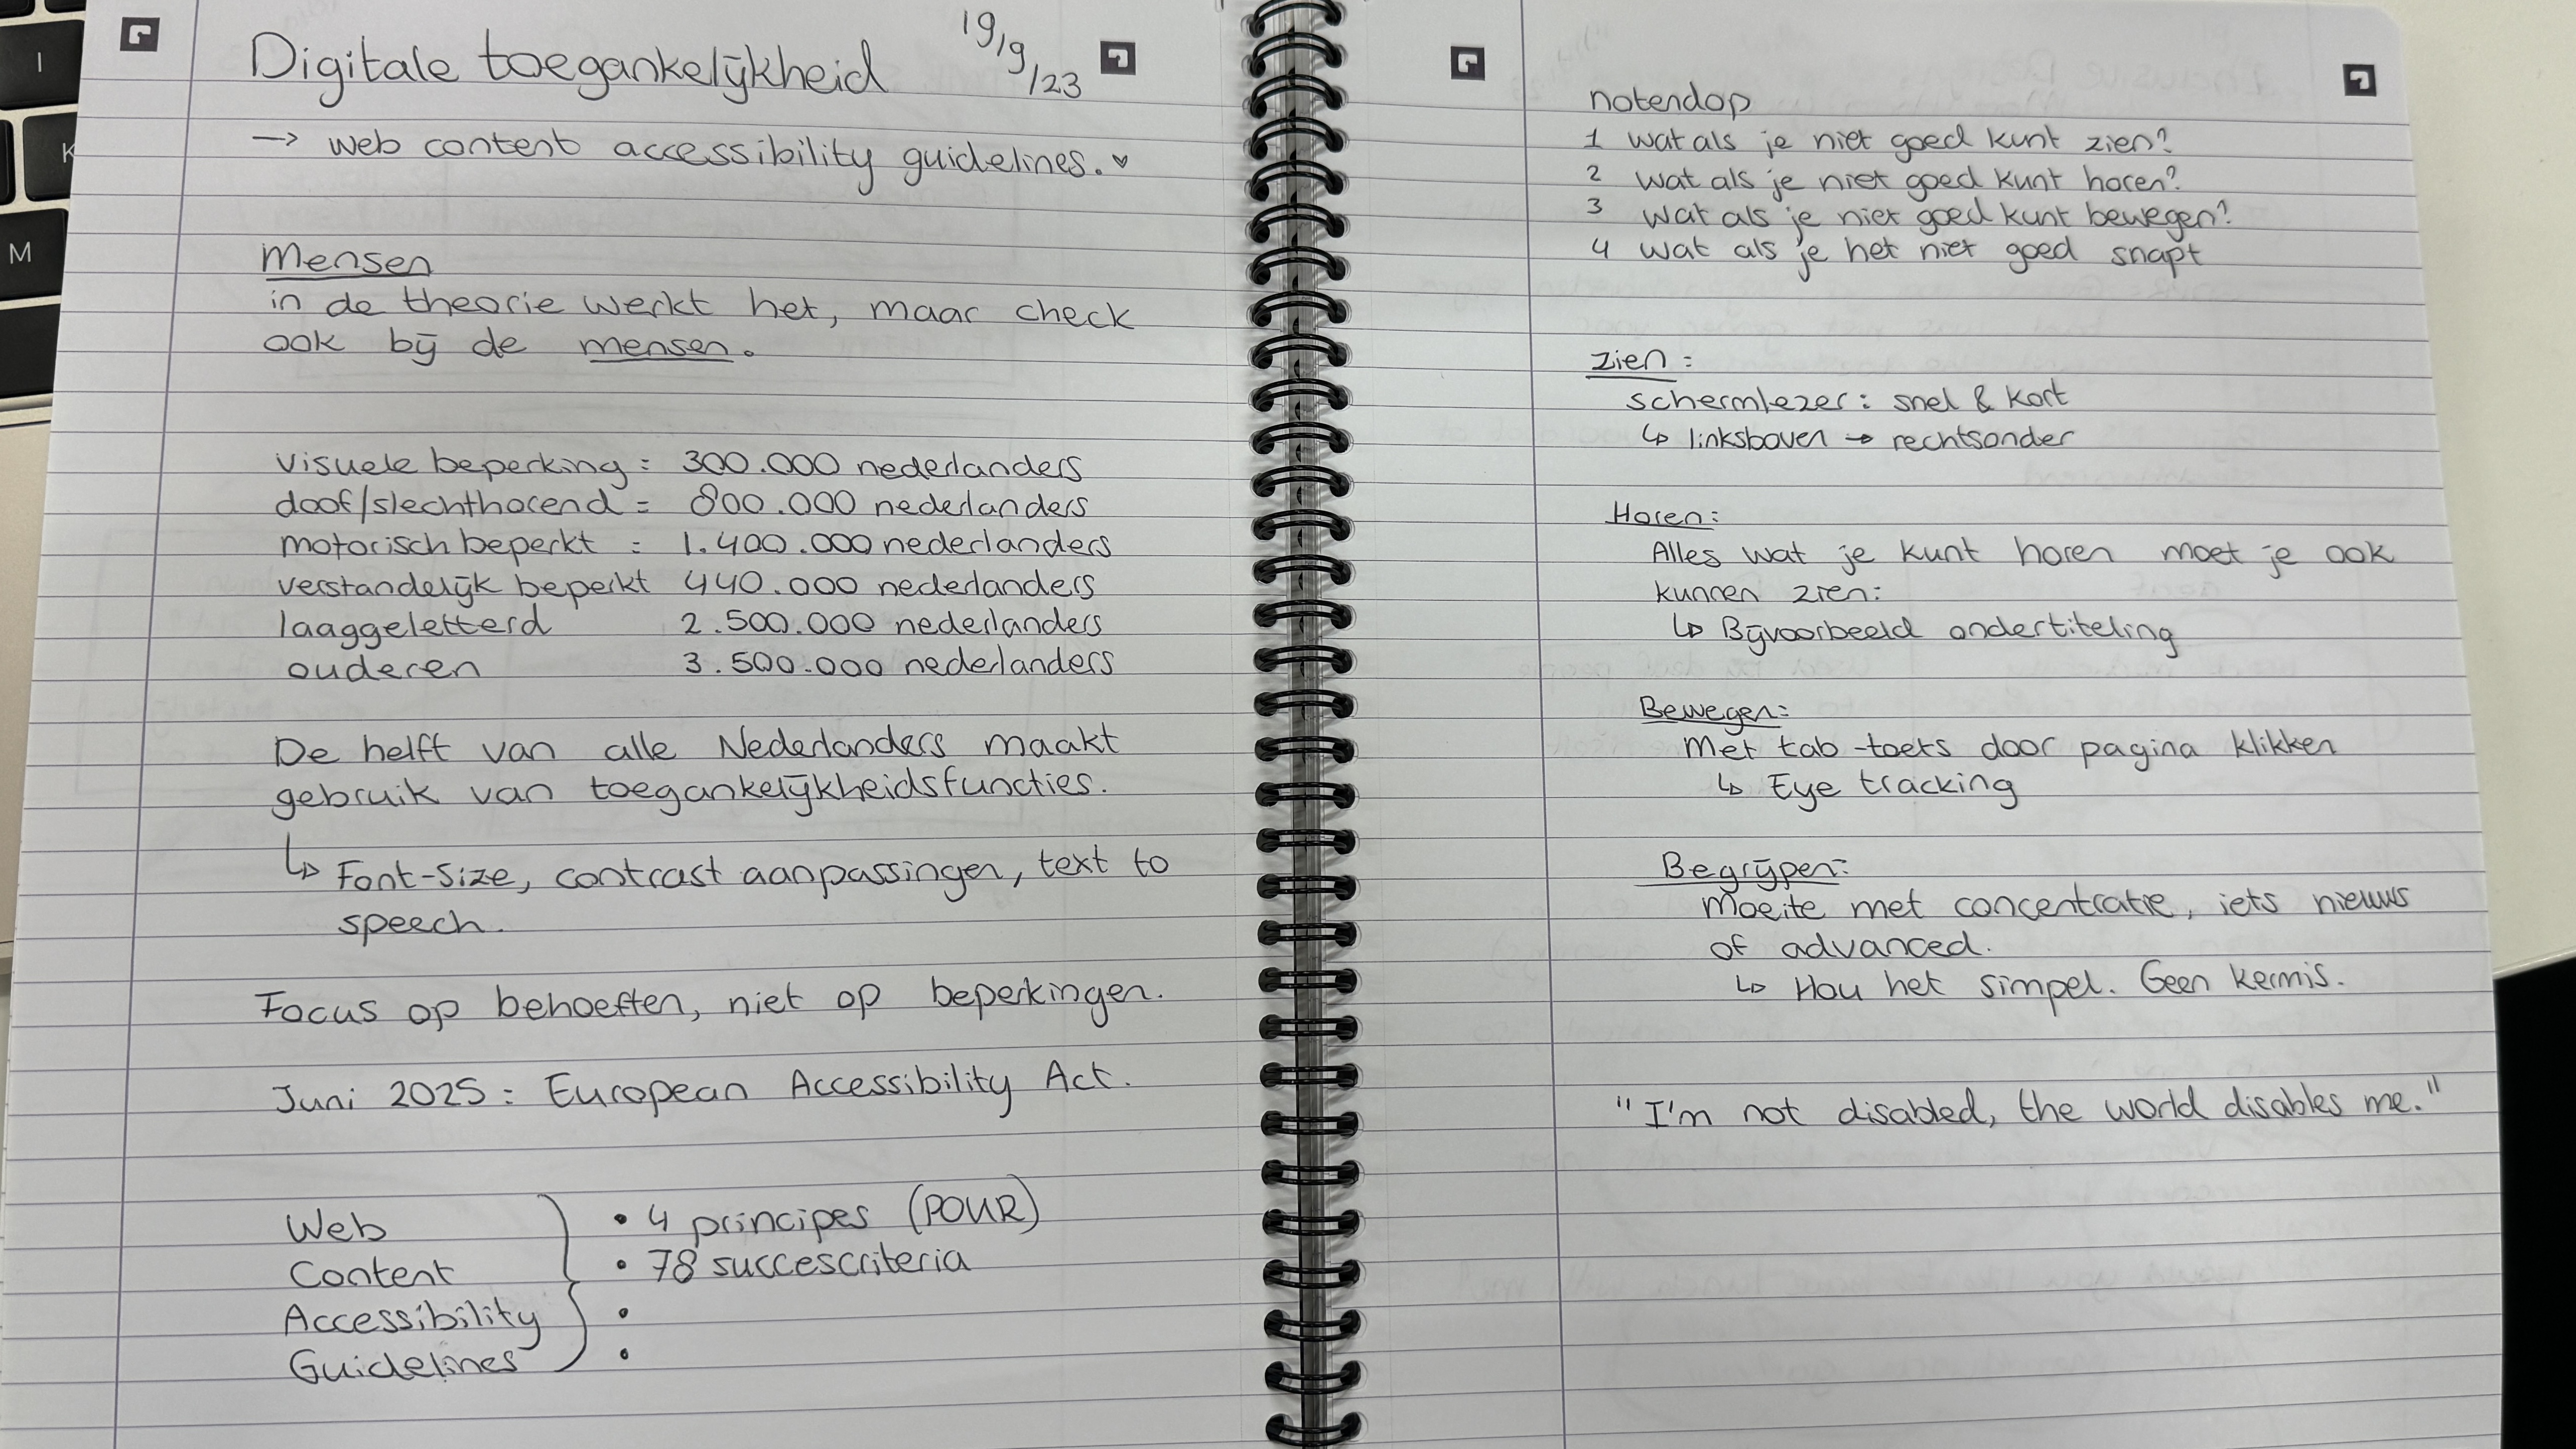 I
K
M
Digitale toegankelijkheid
19/9/23
→ web content accessibility guidelines. ♥
Mensen
in de theorie werkt het, maar check
ook bij de mensen.
visuele beperking = 300.000 nederlanders
doof/slechthorend = 800.000 nederlanders
motorisch beperkt = 1.400.000 nederlanders
verstandelijk beperkt 440.000 nederlanders
laaggeletterd 2.500.000 nederlanders
ouderen 3.500.000 nederlanders
De helft van alle Nederlanders maakt
gebruik van toegankelijkheidsfuncties.
↳ Font-size, contrast aanpassingen, text to
speech.
Focus op behoeften, niet op beperkingen.
Juni 2025: European Accessibility Act.
Web
Content
Accessibility
Guidelines
• 4 principes (POUR)
• 78 succescriteria
•
•
notendop
1 wat als je niet goed kunt zien?
2 wat als je niet goed kunt horen?
3 wat als je niet goed kunt bewegen?
4 wat als je het niet goed snapt
zien:
schermlezer: snel & kort
↳ linksboven → rechtsonder
Horen:
Alles wat je kunt horen moet je ook
kunnen zien:
↳ Bijvoorbeeld ondertiteling
Bewegen:
Met tab-toets door pagina klikken
↳ Eye tracking
Begrijpen:
Moeite met concentratie, iets nieuws
of advanced.
↳ Hou het simpel. Geen kermis.
"I'm not disabled, the world disables me."